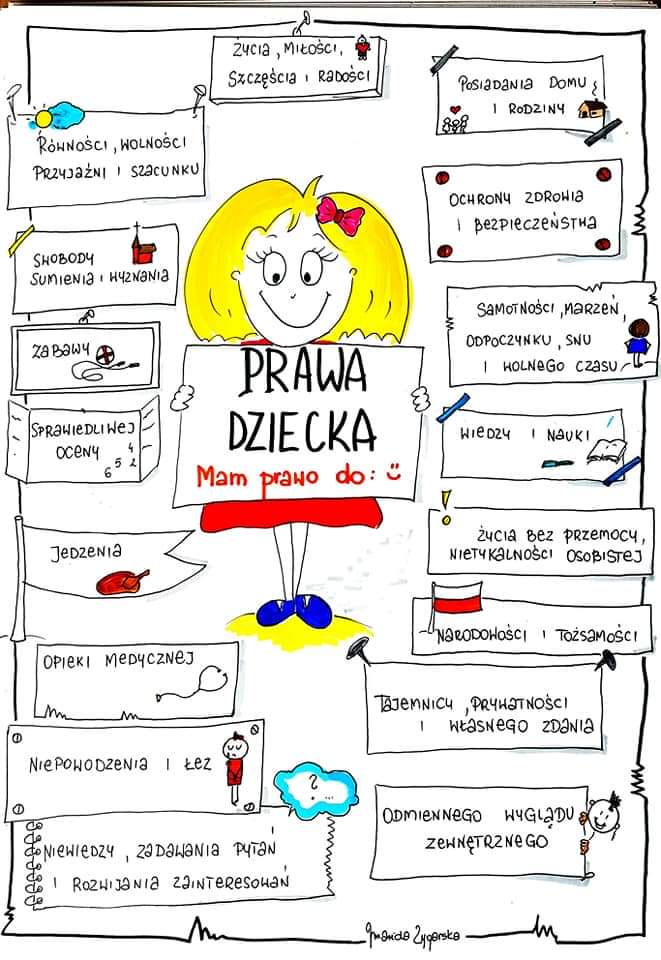 ŻYCIA, MIŁOŚCI,
SZCZĘŚCIA I RADOŚCI
POSIADANIA DOMU
I RODZINY
RÓWNOŚCI, WOLNOŚCI
PRZYJAŹNI I SZACUNKU
OCHRONY ZDROWIA
I BEZPIECZEŃSTWA
SWOBODY
SUMIENIA I WYZNANIA
SAMOTNOŚCI, MARZEŃ,
ODPOCZYNKU, SNU
I WOLNEGO CZASU
ZABAWY
PRAWA
DZIECKA
Mam prawo do:
SPRAWIEDLIWEJ
OCENY
4
6 5 2
WIEDZY I NAUKI
!
ŻYCIA BEZ PRZEMOCY,
NIETYKALNOŚCI OSOBISTEJ
JEDZENIA
NARODOWOŚCI I TOŻSAMOŚCI
OPIEKI MEDYCZNEJ
TAJEMNICY, PRYWATNOŚCI
I WŁASNEGO ZDANIA
NIEPOWODZENIA I ŁEZ
?
...
ODMIENNEGO WYGLĄDU
ZEWNĘTRZNEGO
NIEWIEDZY, ZADAWANIA PYTAŃ
I ROZWIJANIA ZAINTERESOWAŃ